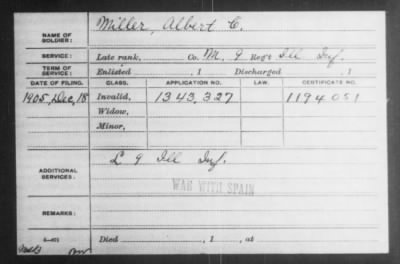 NAME OF SOLDIER: Miller, Albert C.
SERVICE: Late rank, Co. M, 9 Reg't Ill Inf.
TERM OF SERVICE: Enlisted , 1 Discharged , 1
DATE OF FILING. CLASS. APPLICATION NO. LAW. CERTIFICATE NO.
1905, Dec, 18 Invalid, 1343,327 1194051
Widow,
Minor,
ADDITIONAL SERVICES: L 9 Ill Inf.
WAR WITH SPAIN
REMARKS:
Died , 1 , at